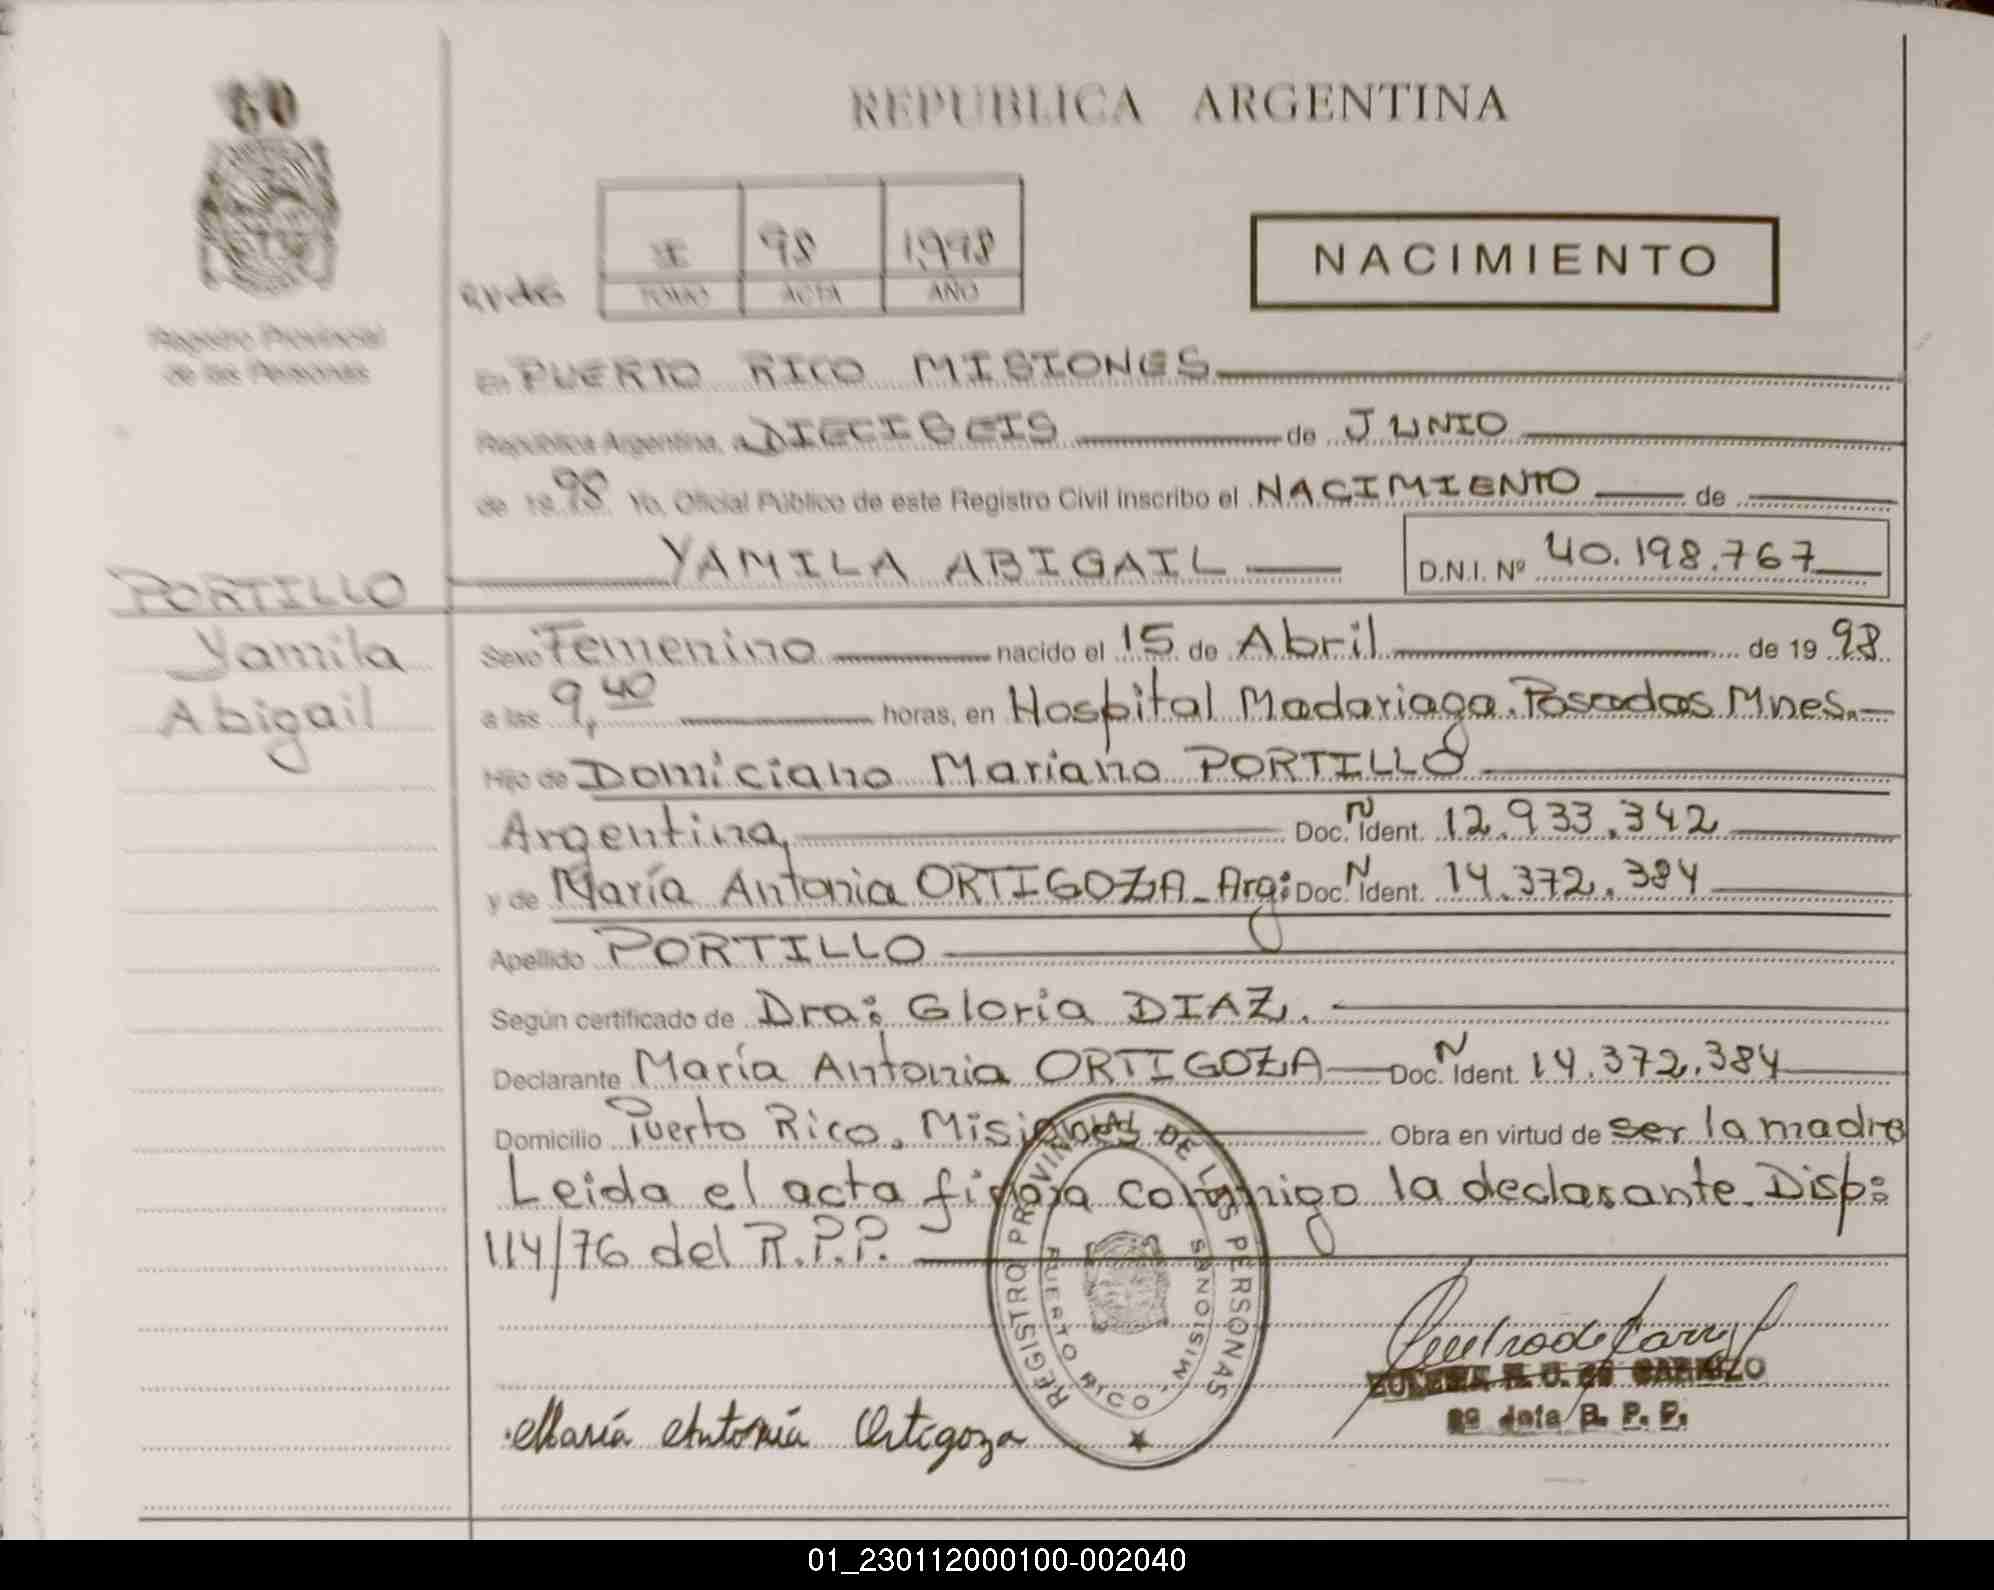 60
REPUBLICA ARGENTINA
98 1998
TOMO ACTA AÑO
NACIMIENTO
Registro Provincial
de las Personas
En PUERTO RICO MISIONES
República Argentina, a DIECISEIS de JUNIO
de 1998 Yo, Oficial Público de este Registro Civil inscribo el NACIMIENTO de
YAMILA ABIGAIL D.N.I. Nº 40.198.767
PORTILLO
Yamila
Abigail
Sexo Femenino nacido el 15 de Abril de 1998
a las 9,40 horas, en Hospital Madariaga. Posadas Mnes.
Hijo de Domiciano Mariano PORTILLO
Argentina, Doc. N Ident. 12.933.342
y de María Antonia ORTIGOZA - Arg: Doc. N Ident. 14.372.384
Apellido PORTILLO
Según certificado de Dra: Gloria DIAZ.
Declarante María Antonia ORTIGOZA Doc. N Ident. 14.372.384
Domicilio Puerto Rico. Misiones Obra en virtud de ser la madre
Leida el acta firma conmigo la declarante. Disp:
114/76 del R.P.P.
REGISTRO PROVINCIAL DE LAS PERSONAS
PUERTO RICO, MISIONES
DE CARRIZO
R. P. P.
María Antonia Ortigoza
01_230112000100-002040